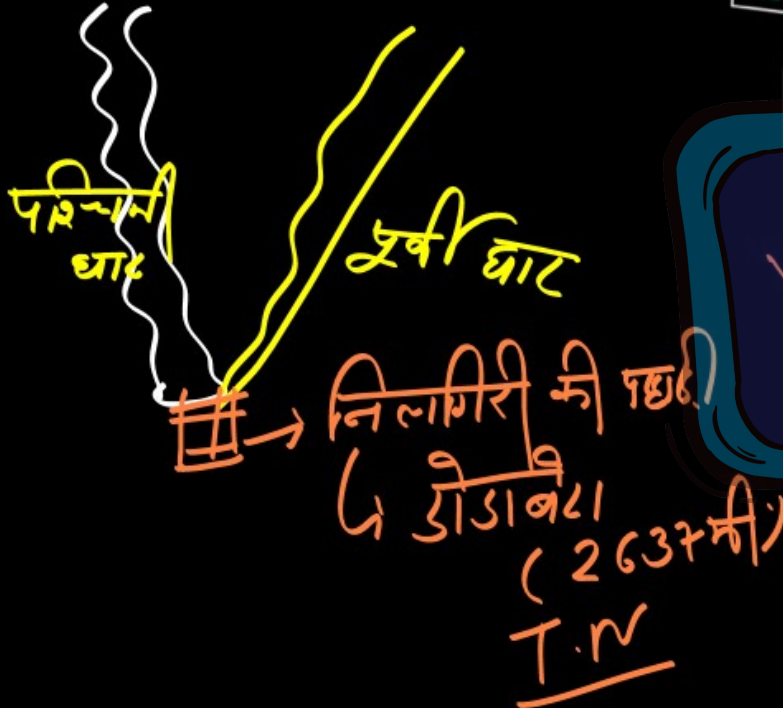 पश्चिमी
घाट
पूर्वी घाट
→ निलगिरी की पहाड़ी
↳ डोडाबेटा
(2637 मी)
T.N